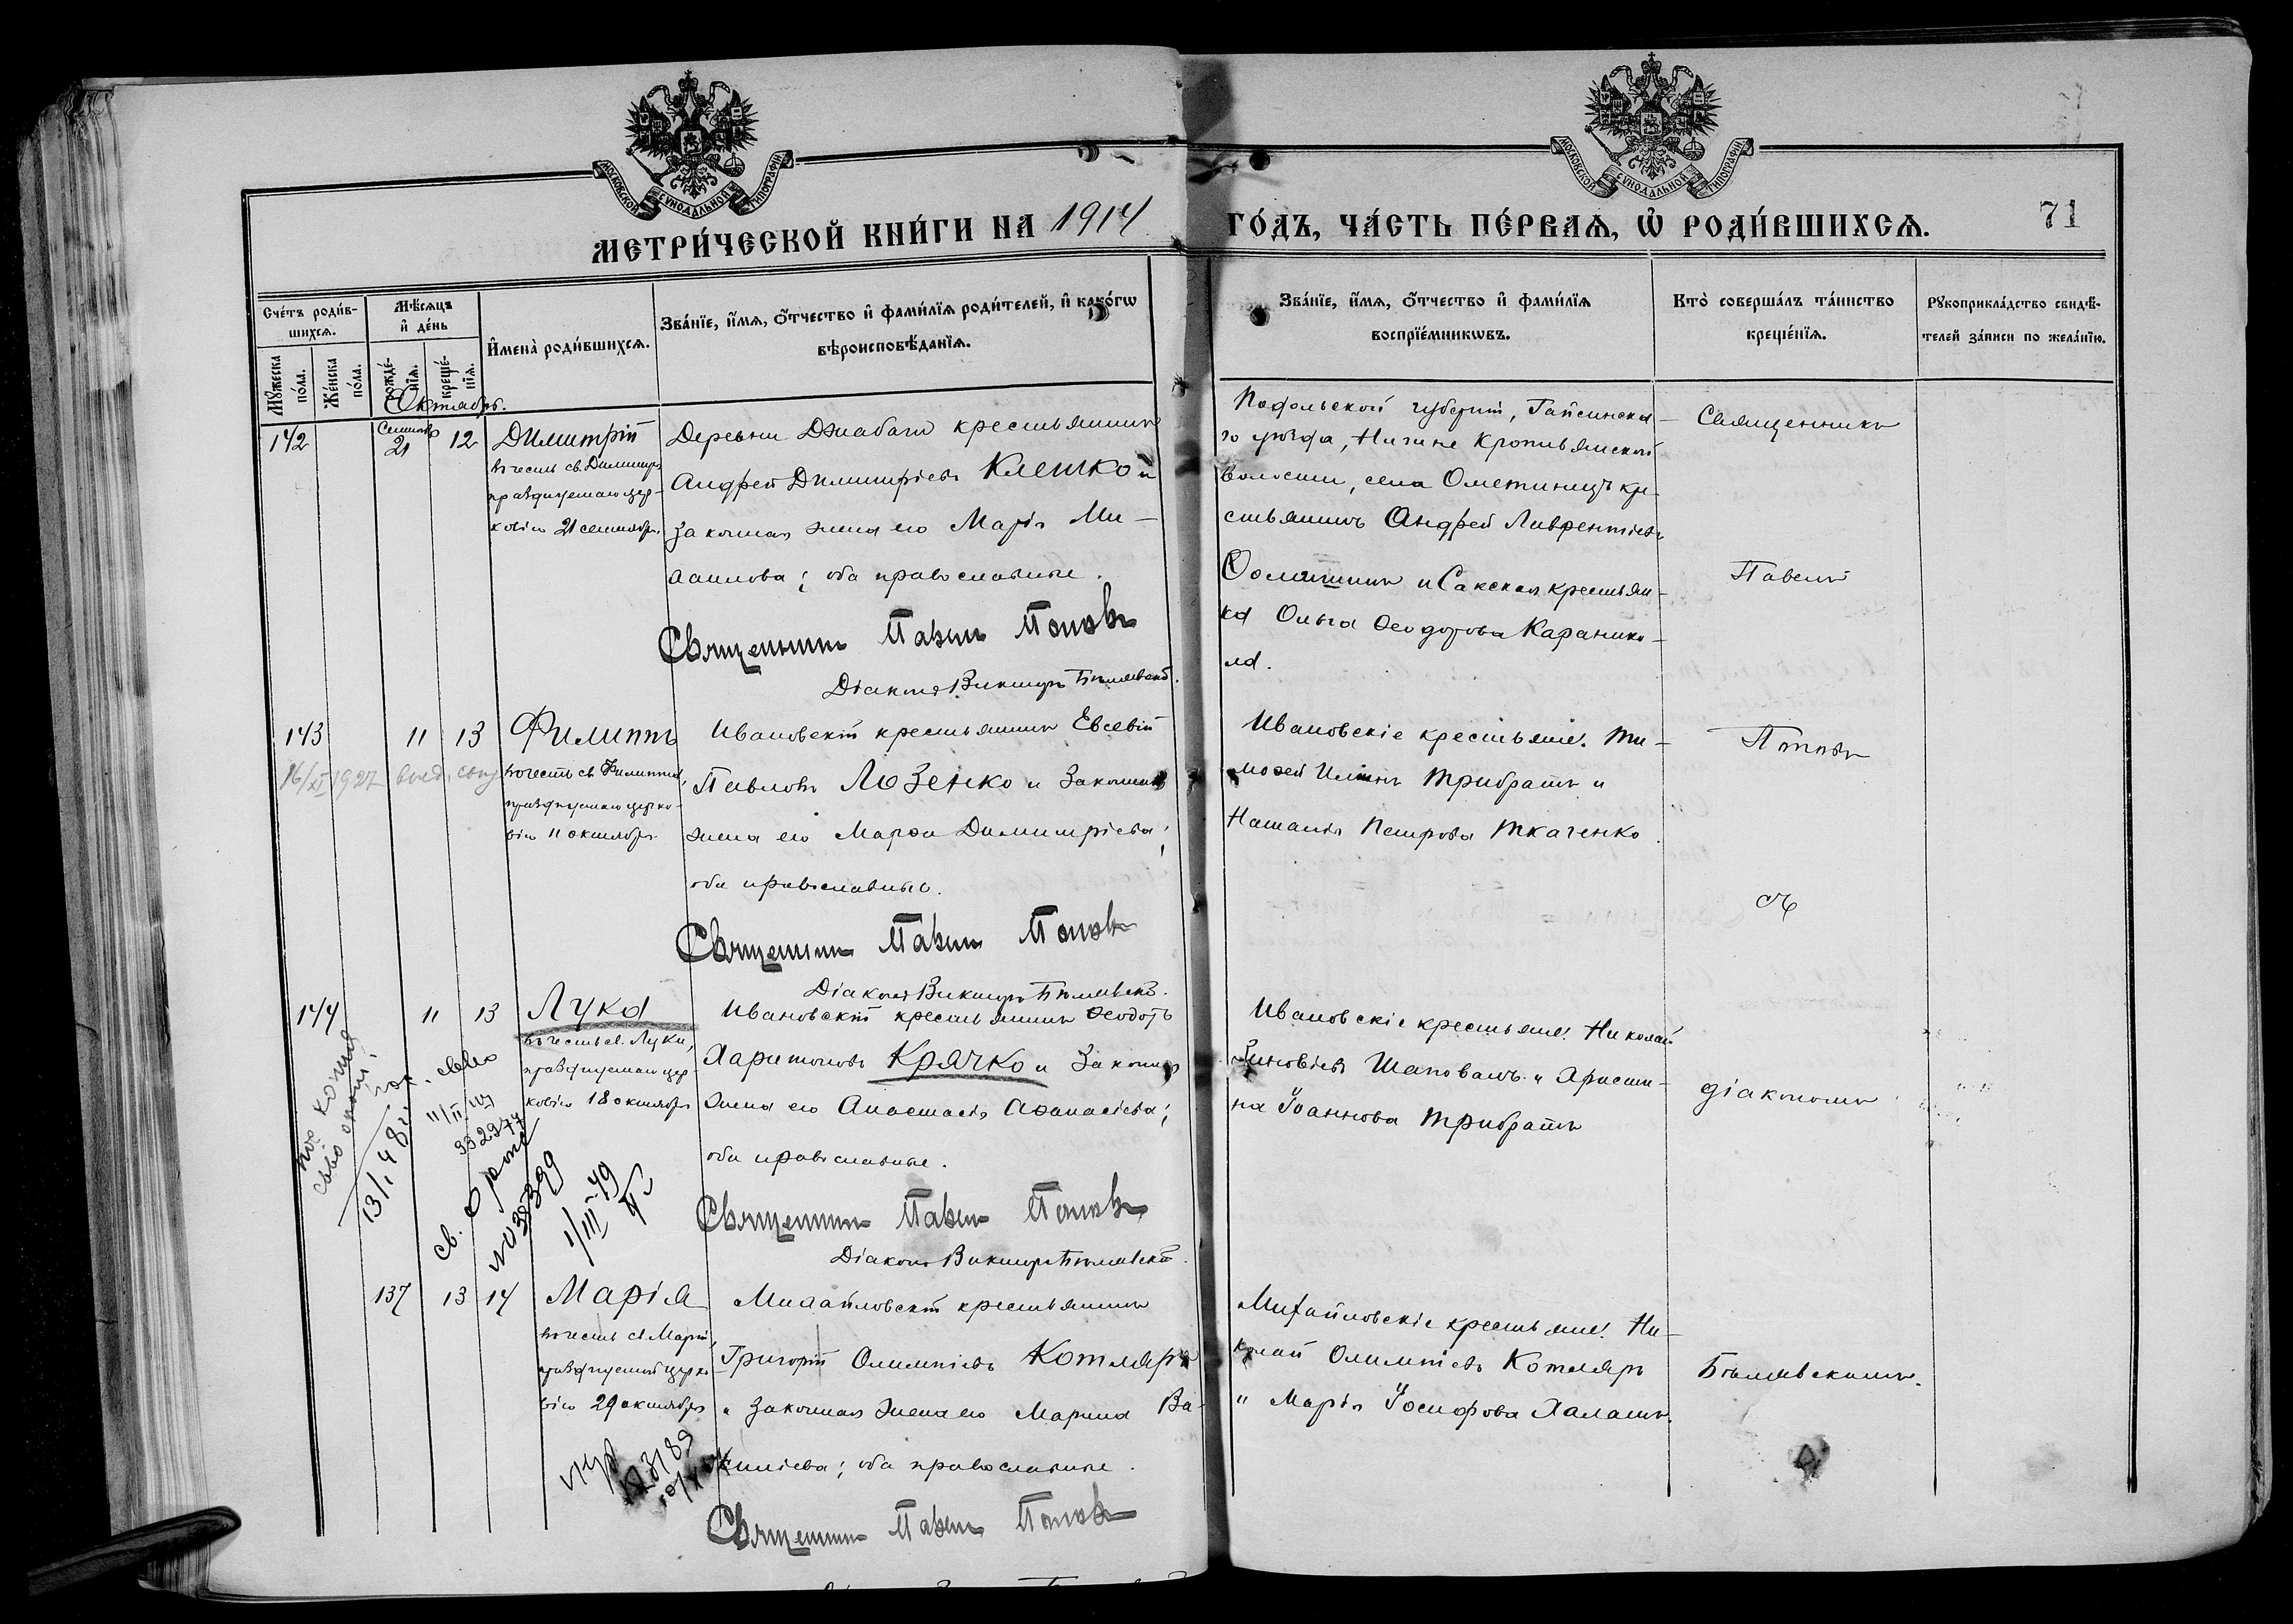 МОСКОВСКОЙ СѴНОДАЛЬНОЙ ТИПОГРАФІИ
МОСКОВСКОЙ СѴНОДАЛЬНОЙ ТИПОГРАФІИ
МЕТРИ́ЧЕСКОЙ КНИ́ГИ НА 1914 ГО́ДЪ, ЧА́СТЬ ПЕ́РВАѦ, Ѽ РОДИ́ВШИХСѦ.
71
Сче́тъ роди́в-
шихсѧ.
Мꙋ́жеска
по́ла.
Же́нска
по́ла.
Мѣ́сѧцъ
и҆ де́нь
рожде́-
нїѧ.
креще́-
нїѧ.
И҆мена̀ роди́вшихсѧ.
Зва́нїе, и҆́мѧ, ѻ҆́тчество и҆ фами́лїѧ роди́телей, и҆ како́гѡ
вѣроисповѣ́данїѧ.
Зва́нїе, и҆́мѧ, ѻ҆́тчество и҆ фами́лїѧ
воспрїе́мникѡвъ.
Кто̀ соверша́лъ та́инство
креще́нїѧ.
Рꙋкоприкла́дство свидѣ́-
телей за́писи по жела́нїю.
Октябрь.
142
Сентябр
21
12
Димитрій
въ честь св. Димитрія
празднуемаго цер-
ковію 21 сентября.
Деревни Джабачи крестьянинъ
Андрей Димитріевъ Клешко и
законная жена его Марія Ми-
хаилова; оба православные.
Священникъ Павелъ Поповъ
Діаконъ Викторъ Бѣлявскій.
Подольской губерніи, Гайсинска-
го уѣзда, Нижне Кропивянской
волости, села Ометинецъ кре-
стьянинъ Андрей Лаврентіевъ
и Сакская крестьян-
ка Ольга Ѳеодорова Каранико-
ла.
Священникъ
Павелъ
143
11
13
Филиппъ
въ честь св. Филиппа,
празднуемаго церко-
вію 11 октября
16/XI 1927
Ивановскій крестьянинъ Евсевій
Павловъ Лозенко и законная
жена его Марѳа Димитріева;
оба православные.
Священникъ Павелъ Поповъ
Діаконъ Викторъ Бѣлявскій.
Ивановскіе крестьяне: Ти-
моѳей Ильинъ Трибратъ и
Наталія Петрова Ткаченко.
Поповъ
съ
144
11
13
Лука
въ честь св. Луки,
празднуемаго цер-
ковію 18 октября
Ивановскій крестьянинъ Ѳеодотъ
Харитоновъ Крячко и законная
жена его Анастасія Аѳанасіева;
оба православные.
Священникъ Павелъ Поповъ
Діаконъ Викторъ Бѣлявскій.
Ивановскіе крестьяне: Николай
Зиновіевъ Шаповалъ и Христи-
на Іоаннова Трибратъ
діакономъ
13/I 48
св. о рожд
№ 30399
1/III-49
137
13
14
Марія
въ честь св. Маріи,
празднуемой церко-
вію 29 октября
Михайловскій крестьянинъ
Григорій Олимпіевъ Котляръ
и законная жена его Марина Ва-
силіева; оба православные.
Священникъ Павелъ Поповъ
Михайловскіе крестьяне: Ни-
колай Олимпіевъ Котляръ
и Марія Іосифова Халатъ.
Бѣлявскимъ.